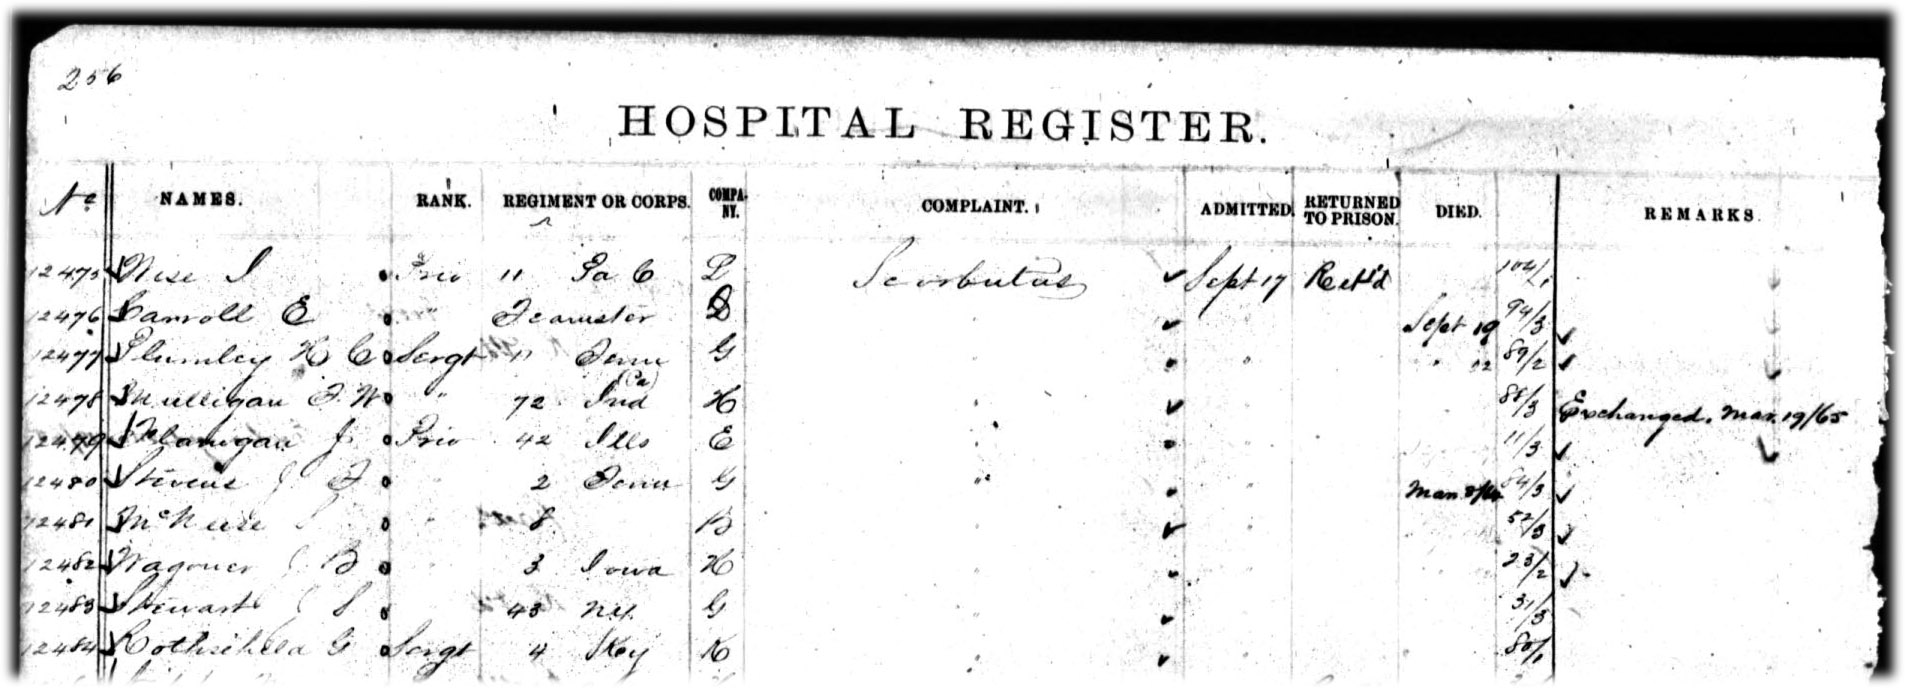 256
HOSPITAL REGISTER.
No NAMES. RANK. REGIMENT OR CORPS. COMPANY. COMPLAINT. ADMITTED. RETURNED TO PRISON. DIED. REMARKS.
12475 Wise I Priv 11 Pa C L Scorbutus Sept 17 Ret'd 104/1
12476 Carroll E " Teamster D " " Sept 19 94/3
12477 Plumley H C Sergt 11 Tenn G " " " 22 89/2
12478 Mulligan F W " 72 Ind (Pa) H " " 88/3 Exchanged. Mar. 19/65
12479 Flanigan J Priv 42 Ills E " " 11/3
12480 Stevens J F " 2 Tenn G " " Mar 84/3
12481 " 8 B " " 52/3
12482 Wagoner J B " 3 Iowa H " " 23/2
12483 Stewart J S " 43 NY. G " " 31/3
12484 Rothschild G Sergt 4 Key K " " 80/1